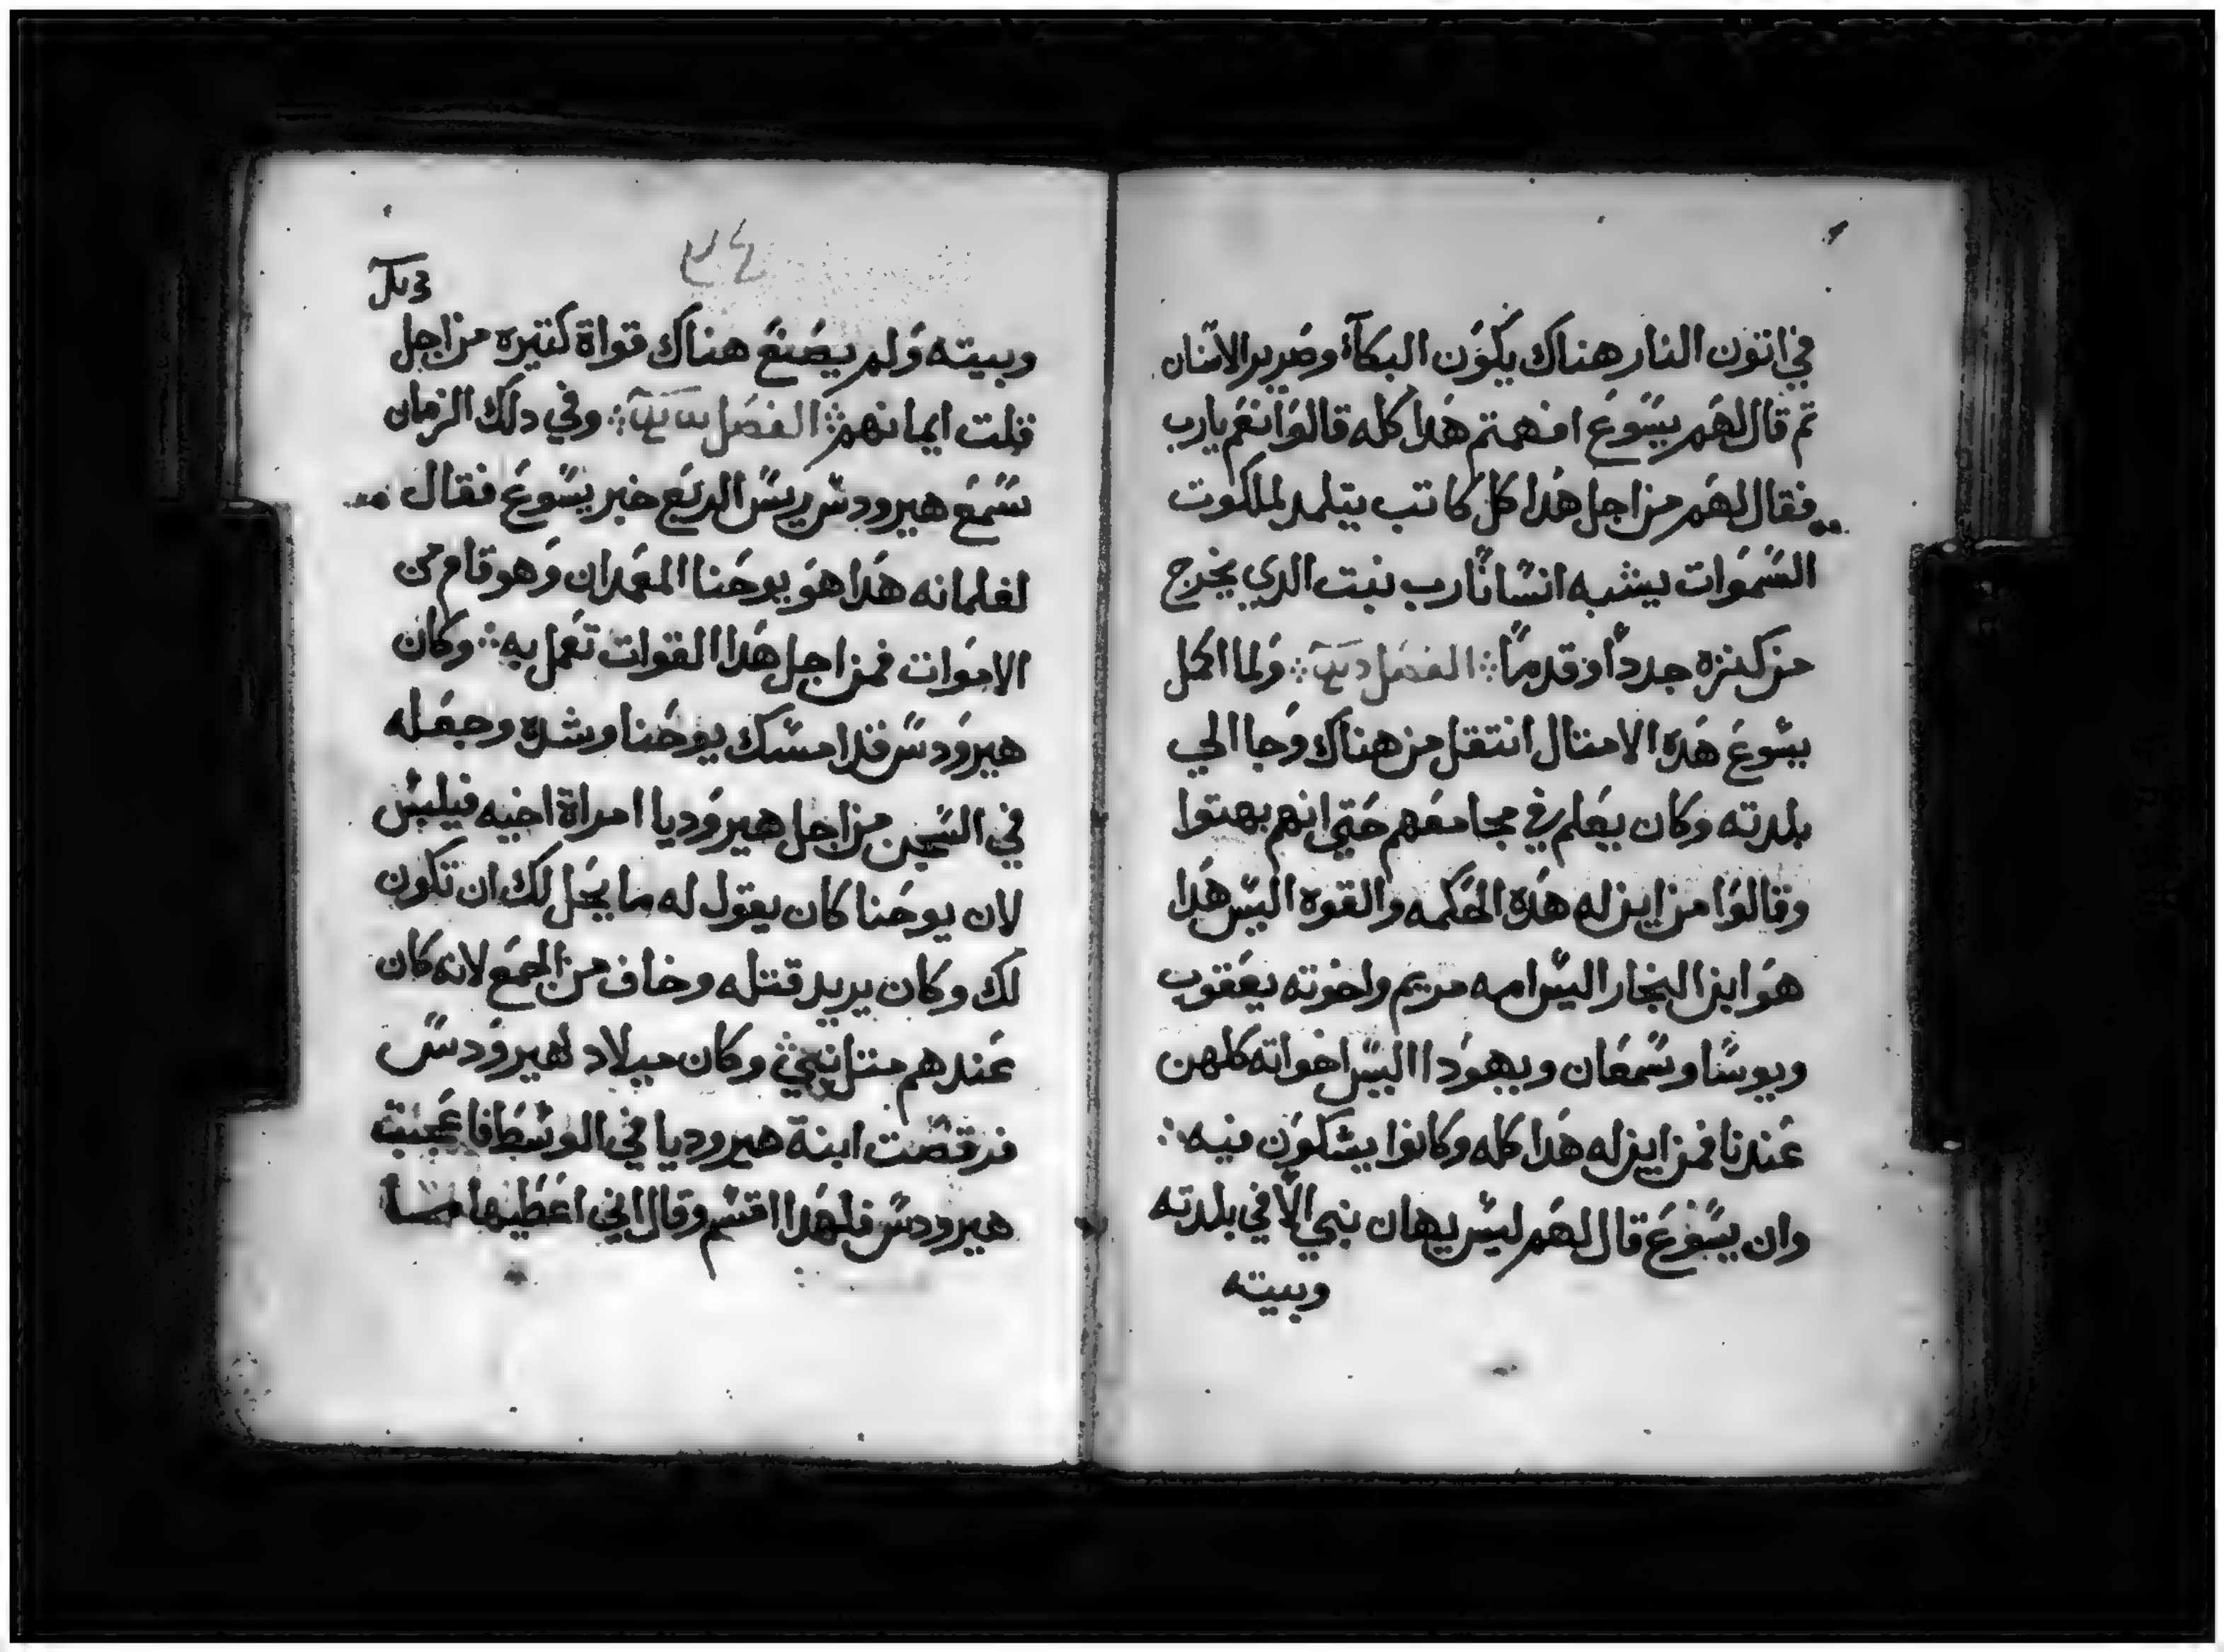 في اتون النار هناك يكون البكآء وصرير الاسنان
تم قال لهم يسوع افهمتم هدا كله قالوا نعم يارب
فقال لهم من اجل هدا كل كاتب يتلمد لملكوت
السموات يشبه انسانا رب بيت الدي يخرج
من كنزه جددا وقدما الفصل ولما اكمل
يسوع هده الامتال انتقل من هناك وجا الي
بلدته وكان يعلم في مجامعهم حتي انهم بهتوا
وقالوا من اين له هده الحكمه والقوه اليس هدا
هو ابن النجار اليس امه مريم واخوته يعقوب
ويوسا وسمعان ويهودا اليس اخواته كلهن
عندنا فمن اين له هدا كله وكانوا يشكون فيه
وان يسوع قال لهم ليس يهان نبي الا في بلدته
وبيته
٣٤
وبيته ولم يصنع هناك قواة كتيره من اجل
قلت ايمانهم الفصل وفي دلك الزمان
سمع هيرودس ريس الربع خبر يسوع فقال
لغلمانه هدا هو يوحنا المعمدان وهو قام من
الاموات فمن اجل هدا القوات تعمل به وكان
هيرودس قد امسك يوحنا وشده وجعله
في السجن من اجل هيروديا امراة اخيه فيلبس
لان يوحنا كان يقول له ما يحل لك ان تكون
لك وكان يريد قتله وخاف من الجمع لانه كان
عندهم متل نبي وكان ميلاد لهيرودس
فرقصت ابنة هيروديا في الوسط فاعجبت
هيرودس فلهدا اقسم وقال اني اعطيها